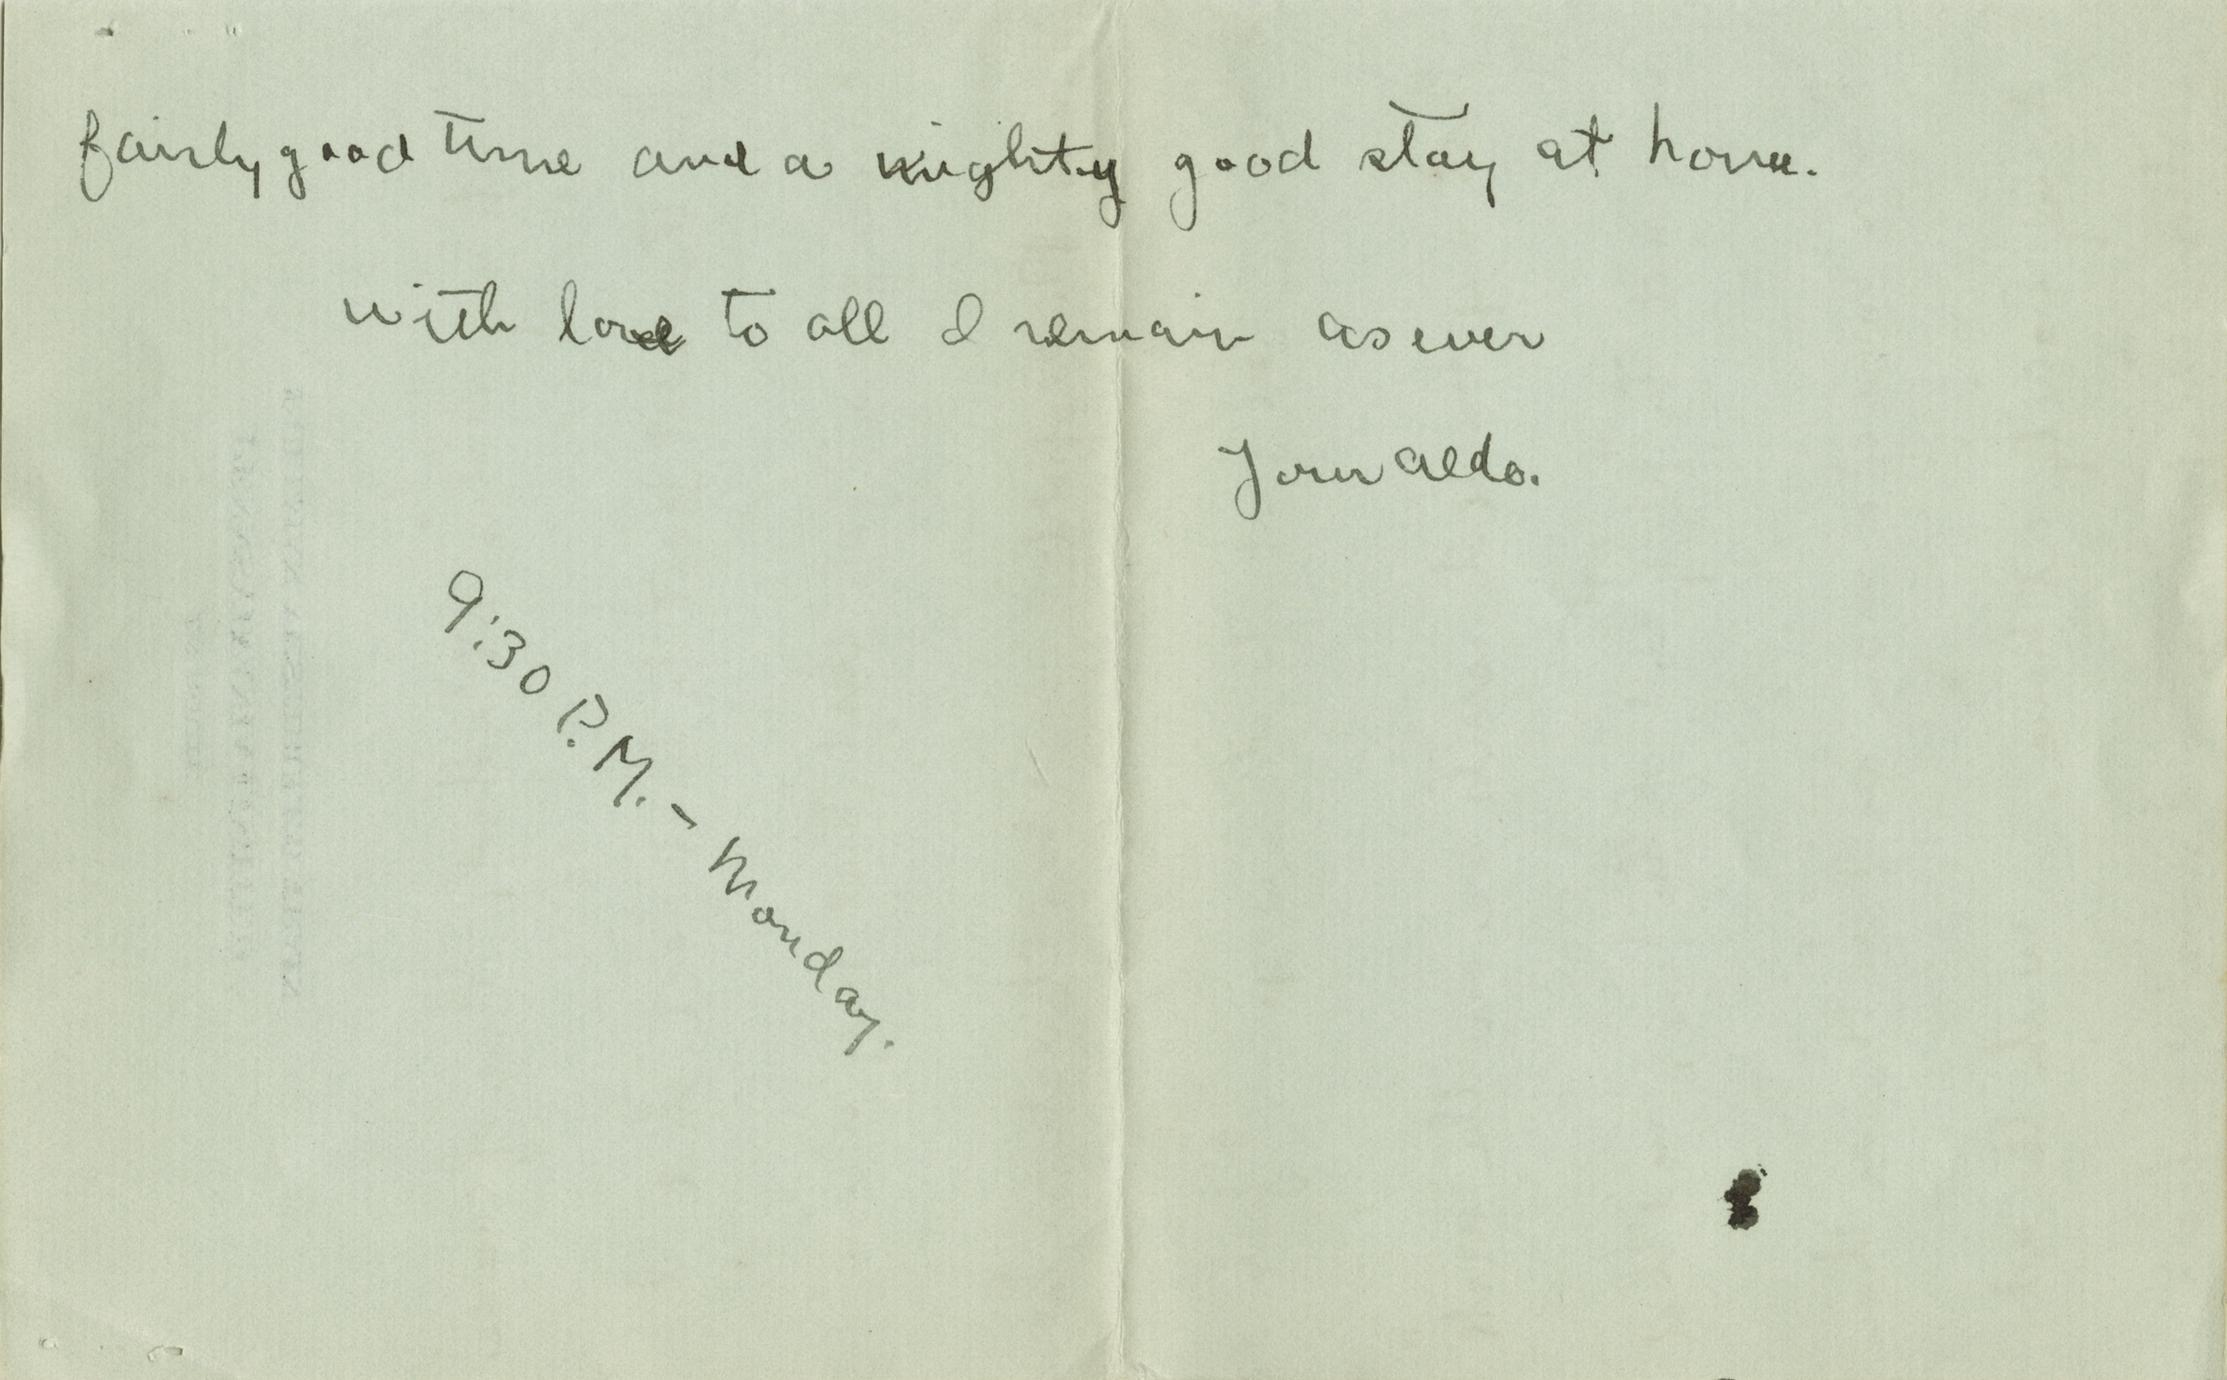 fairly good time and a mighty good stay at home.
with love to all I remain as ever
Your Aldo.
9:30 P.M. - Monday.